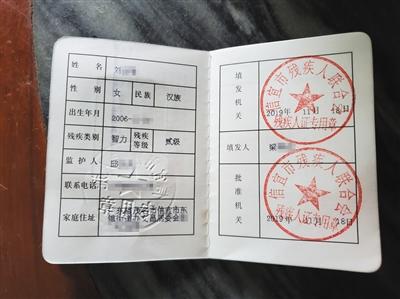 姓名 刘
性别 女 民族 汉族
出生年月 2006-
残疾类别 智力 残疾等级 贰级
监护人 邱
联系电话
家庭住址 信宜市东
居委会
填发机关
信宜市残疾人联合会
2019年 11月 18日
残疾人证专用章
填发人 梁
批准机关
信宜市残疾人联合会
2019年 11月 18日
残疾人证专用章